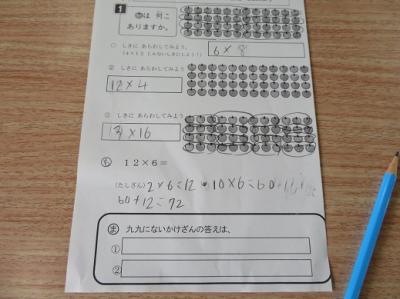 1 は 何こ
ありますか。
① しきに あらわしてみよう。
6×8
② しきに あらわしてみよう
12×4
③ しきに あらわしてみよう
×16
12×6=
(たしざん) 2×6=12 10×6=60
60+12=72
ま 九九にないかけざんの答えは、
①
②